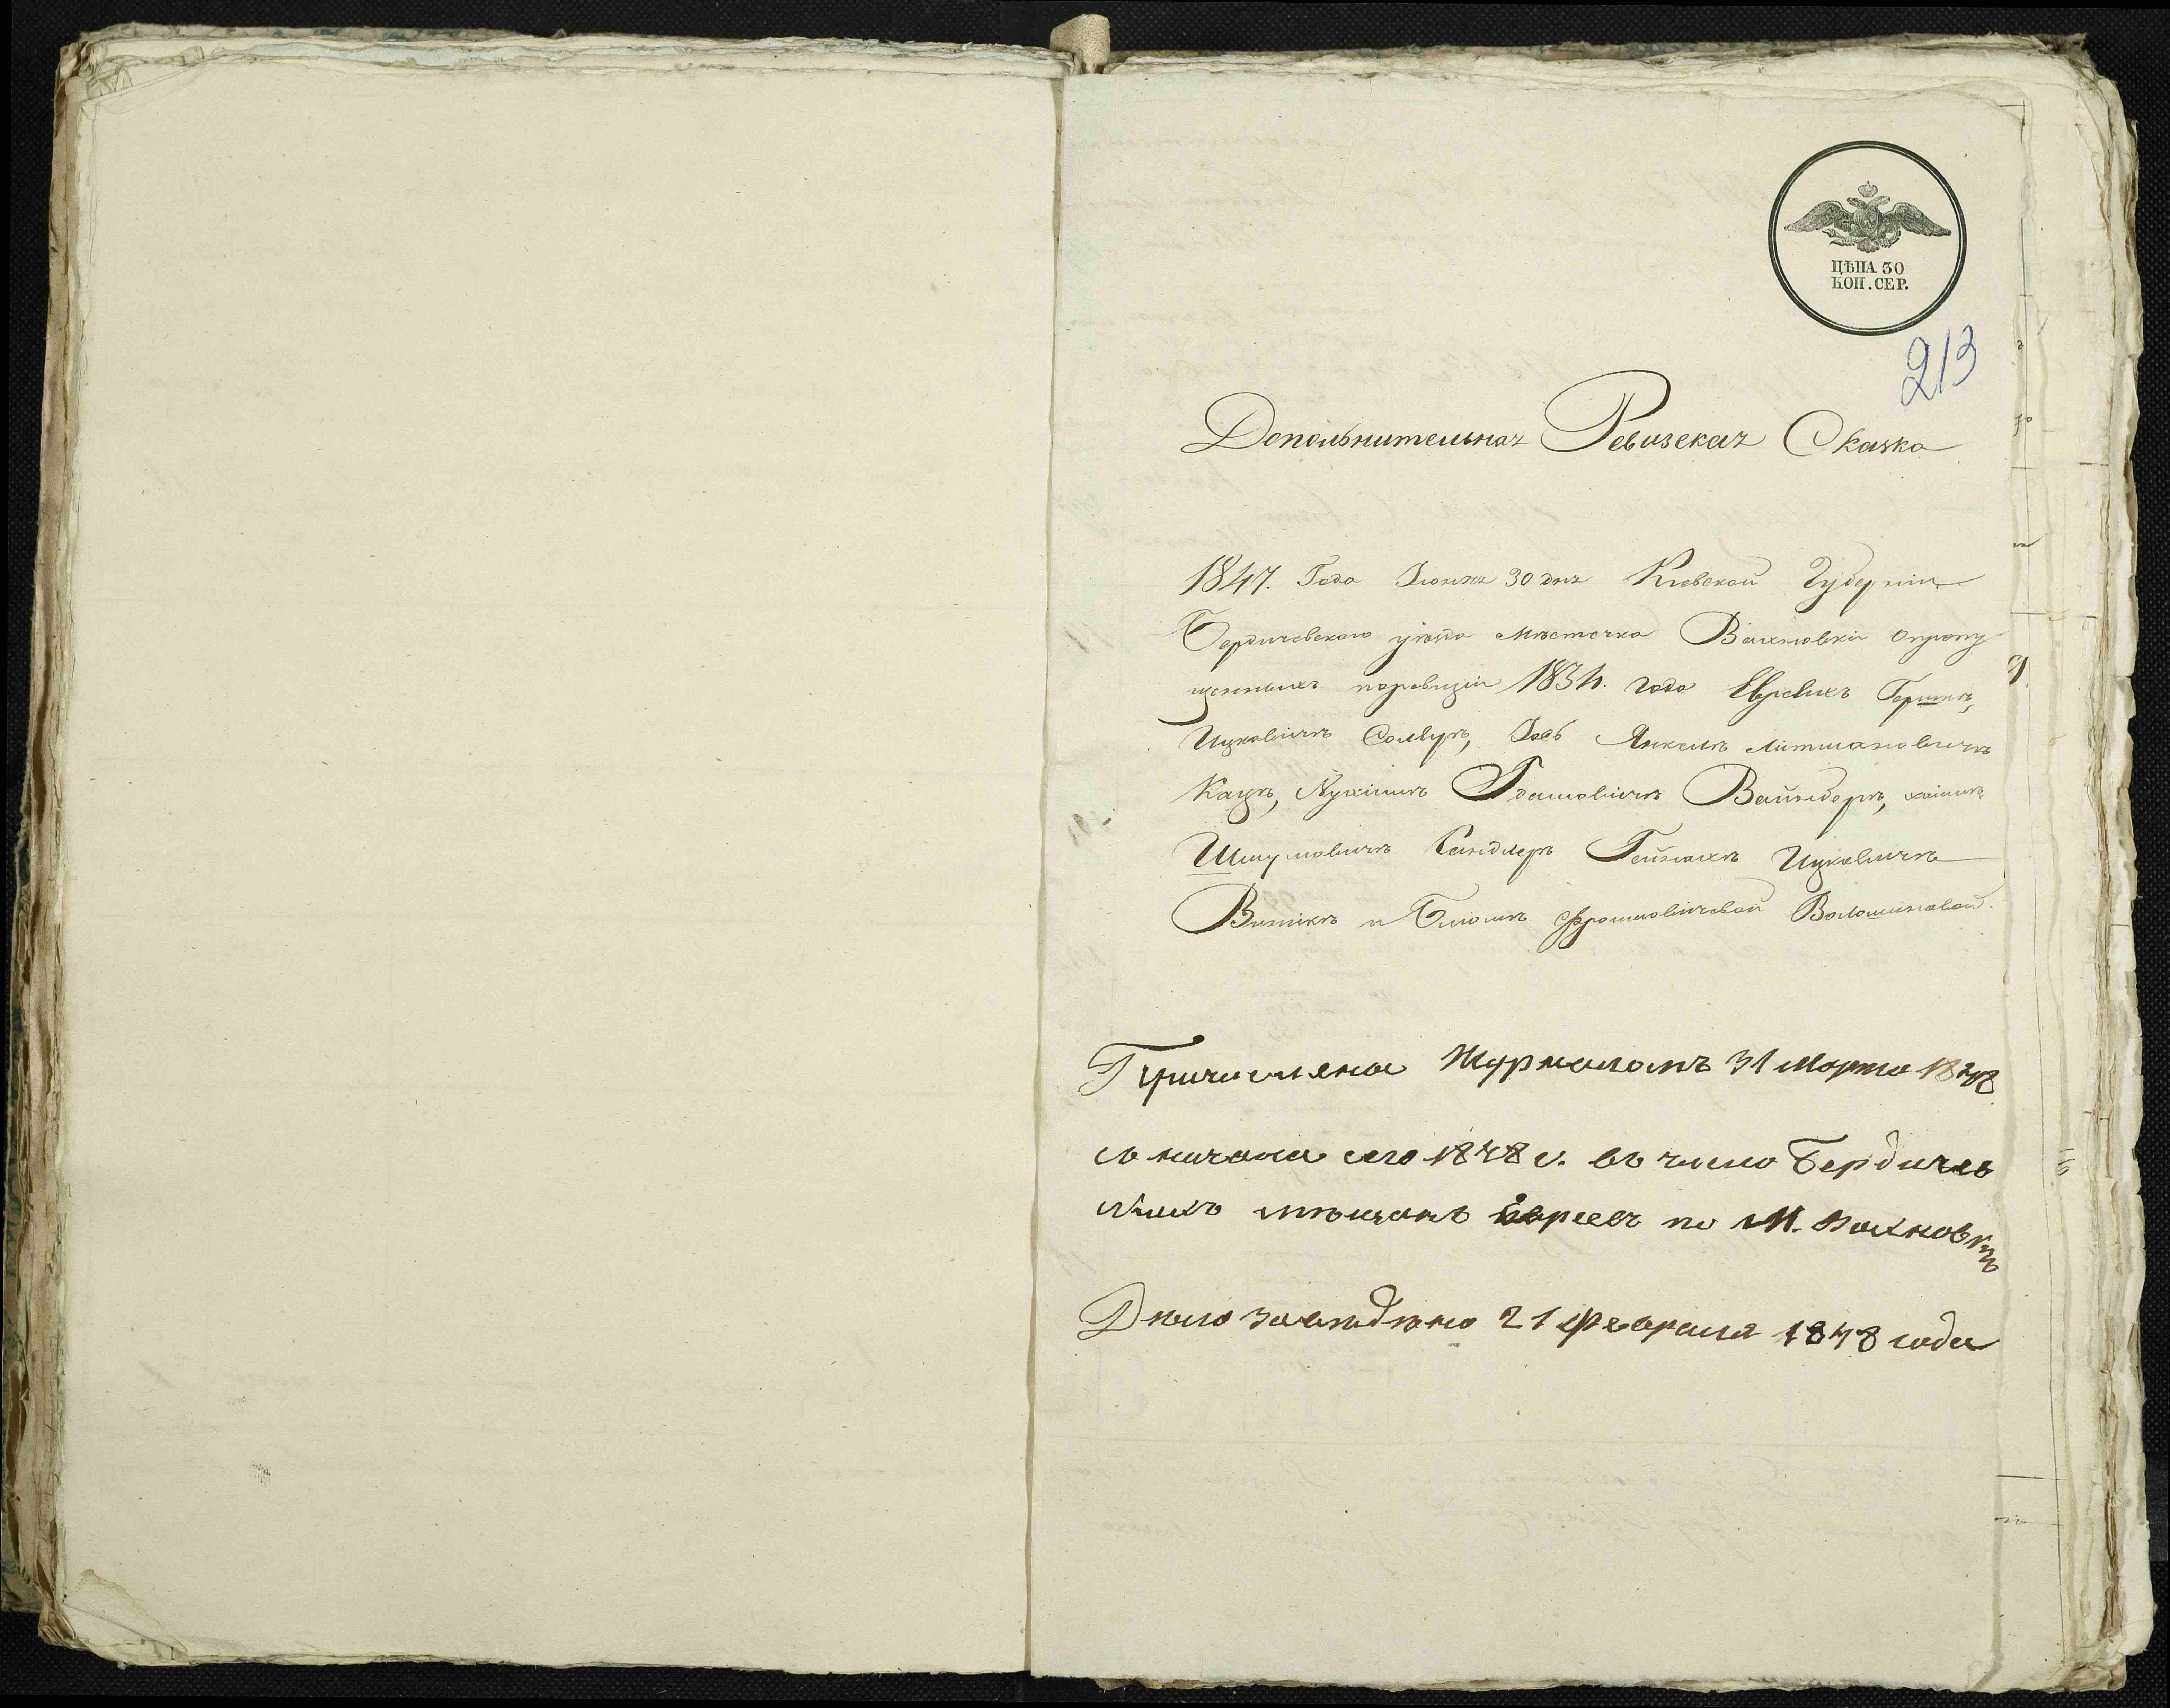 ЦѢНА 30
КОП. СЕР.
213
Дополнительная Ревизская Сказка
1847. Года Июня 30 дня Киевской Губернiи
Бердичевского уѣзда мѣстечка Вахновки опропу
щенныхъ поревизiи 1834. года Евреяхъ Гершкѣ,
Ицковичѣ Iось Янкелѣ
Кацѣ, Нухимѣ Вайнберѣ, хаимѣ
Шмулiовичѣ Сандлерѣ Гейнахѣ Ицковичѣ
и Блюмѣ Фроимовичевой Волошиновой.
Причислена Журналомъ 31 Марта 1848
съ начала сего 1848 г. въ число Бердичев
скихъ мѣщанъ Евреевъ по М. Вахновкѣ
Дѣло заведено 21 Февраля 1848 года